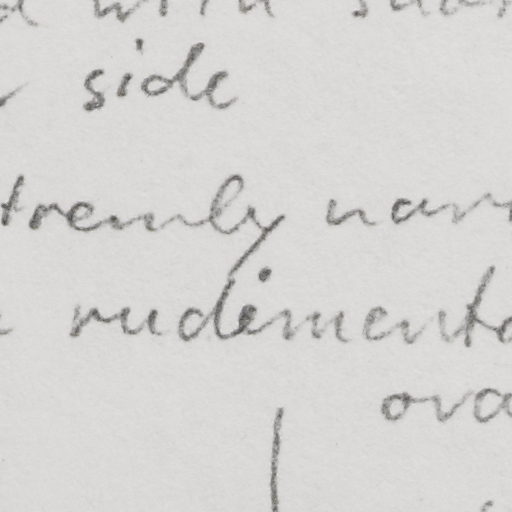 side
tremly narr
rudimenta
ova